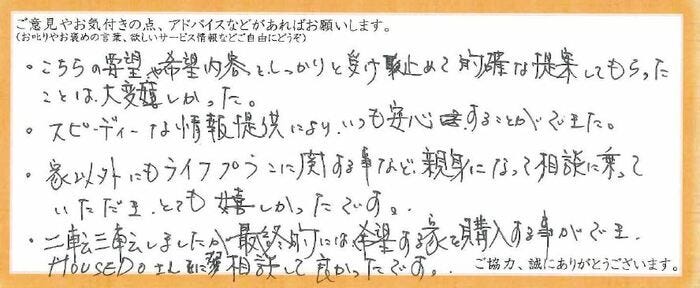 ご意見やお気付きの点、アドバイスなどがあればお願いします。
(お叱りやお褒めの言葉、欲しいサービス情報などご自由にどうぞ)
・こちらの要望や希望内容としっかりと受け止めて的確な提案してもらった
ことは、大変嬉しかった。
・スピーディーな情報提供により、いつも安心することができました。
・家以外にもライフプランに関する事など、親身になって相談に乗って
いただき、とても嬉しかったです。
・二転三転しましたが最終的には、希望する家を購入する事ができ、
HOUSEDOさんに相談して良かったです。
ご協力、誠にありがとうございます。